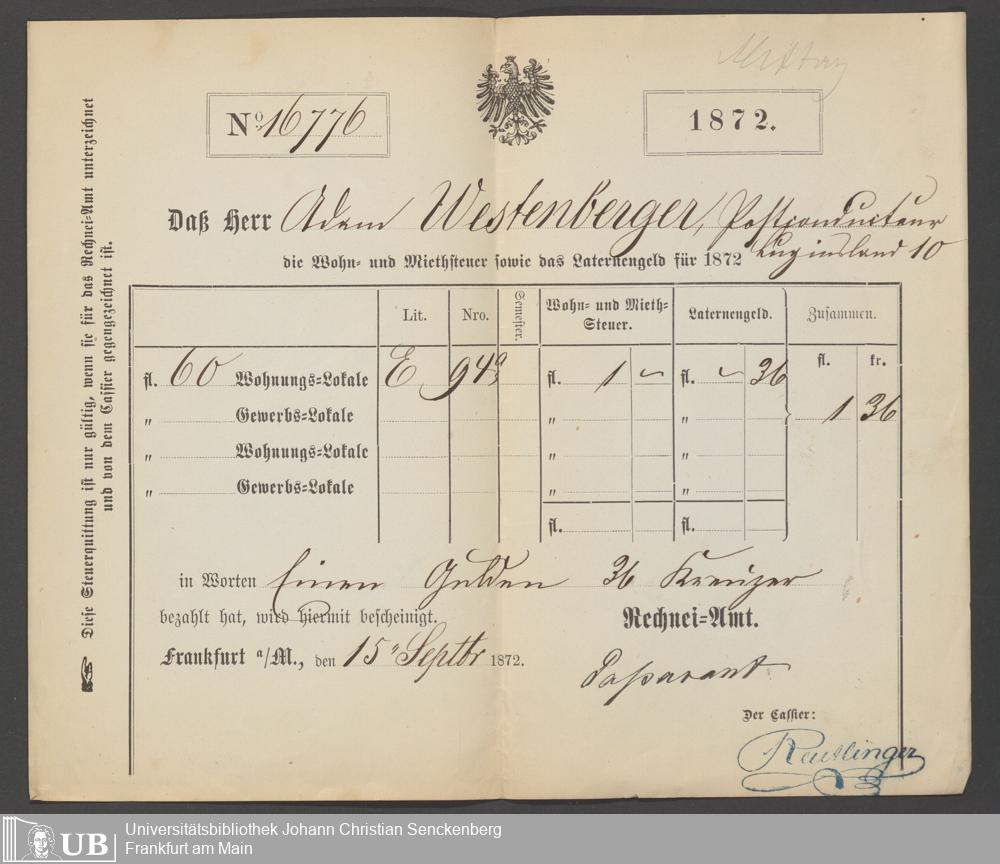 No. 16776
1872.
Daß Herr Adam Westenberger, Postconducteur
Luginsland 10
die Wohn- und Miethsteuer sowie das Laternengeld für 1872
Lit. Nro. Semester. Wohn- und Mieth-Steuer. Laternengeld. Zusammen.
fl. kr.
fl. 60 Wohnungs-Lokale E 94a fl. 1 - fl. - 36
„ Gewerbs-Lokale „ „ 1 36
„ Wohnungs-Lokale „ „
„ Gewerbs-Lokale „ „
fl. fl.
in Worten Einen Gulden 36 Kreuzer
bezahlt hat, wird hiermit bescheinigt.
Rechnei-Amt.
Frankfurt a/M., den 15 Septbr 1872.
Passavant
Der Cassier:
Reutlinger
Diese Steuerquittung ist nur gültig, wenn sie für das Rechnei-Amt unterzeichnet
und von dem Cassier gegengezeichnet ist.
UB
Universitätsbibliothek Johann Christian Senckenberg
Frankfurt am Main